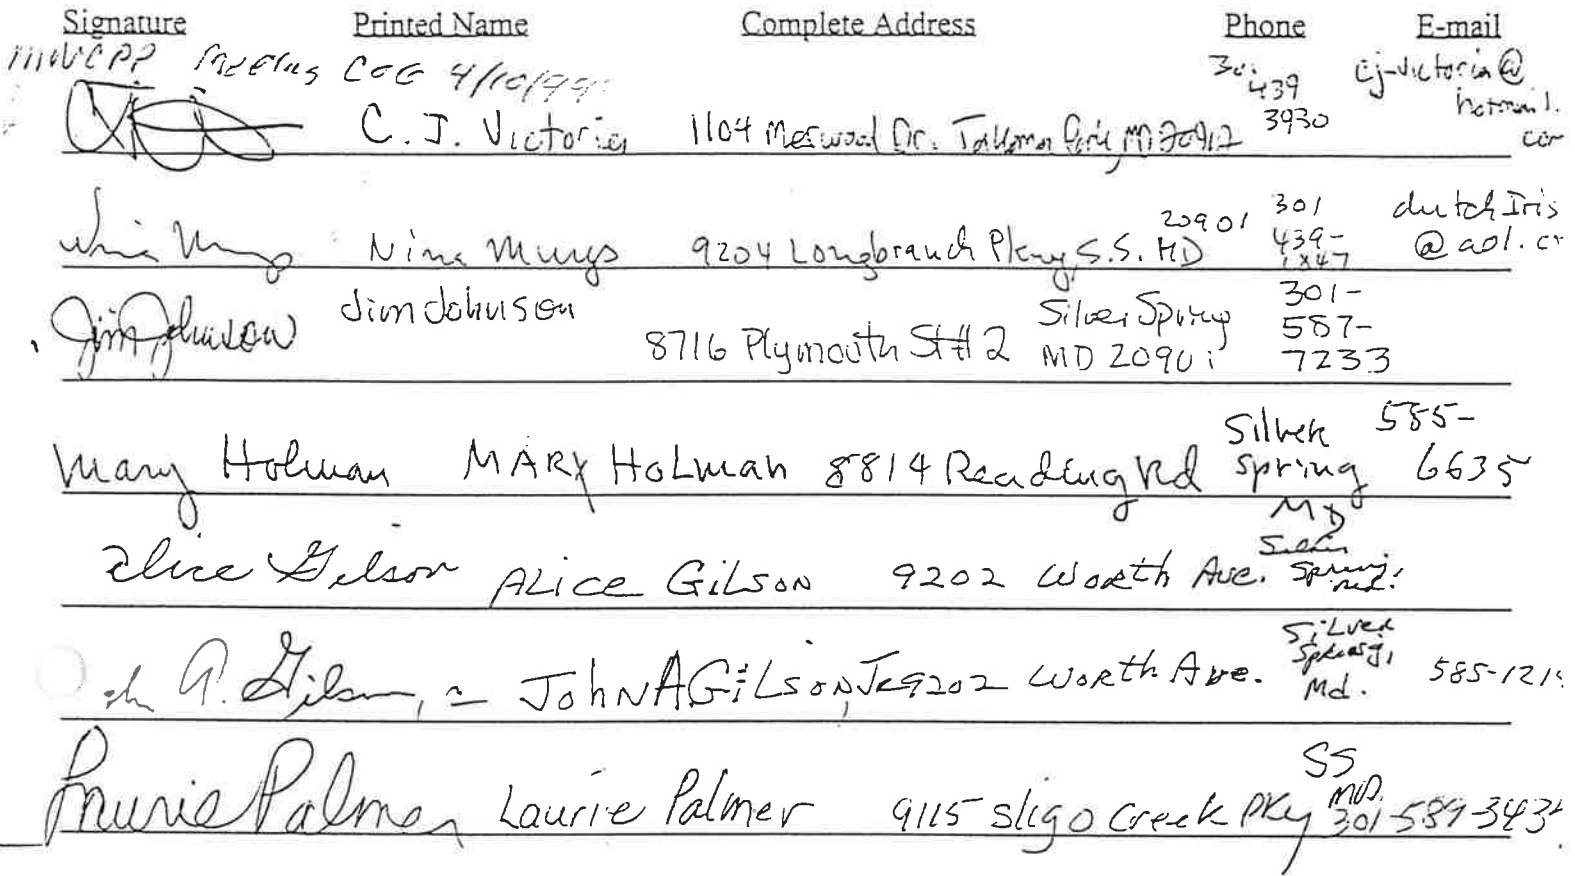 Signature Printed Name Complete Address Phone E-mail
COG 4/10/99
C. J. Victoria 1104 Merwood Dr. Takoma Park, MD 20912 301 439 3930 cj-victoria@ hotmail. com
Nina Nina 9204 Longbranch Pkwy, S.S. MD 20901 301 439- 1847 dutchIris @aol.c
Jim Johnson Jim Johnson 8716 Plymouth St #2 Silver Spring MD 20901 301- 587- 7233
Mary Holman MARY HoLman 8814 Reading Rd Silver Spring MD 585- 6635
Alice Gilson ALice GiLSON 9202 WORTH Ave. Silver Spring, Md.
A. Gilson, JohN A GiLSON, Jr 9202 WORTH Ave. SiLver Spring, Md. 585-121
Laurie Palmer Laurie Palmer 9115 Sligo Creek PKy SS MD. 301-589-343